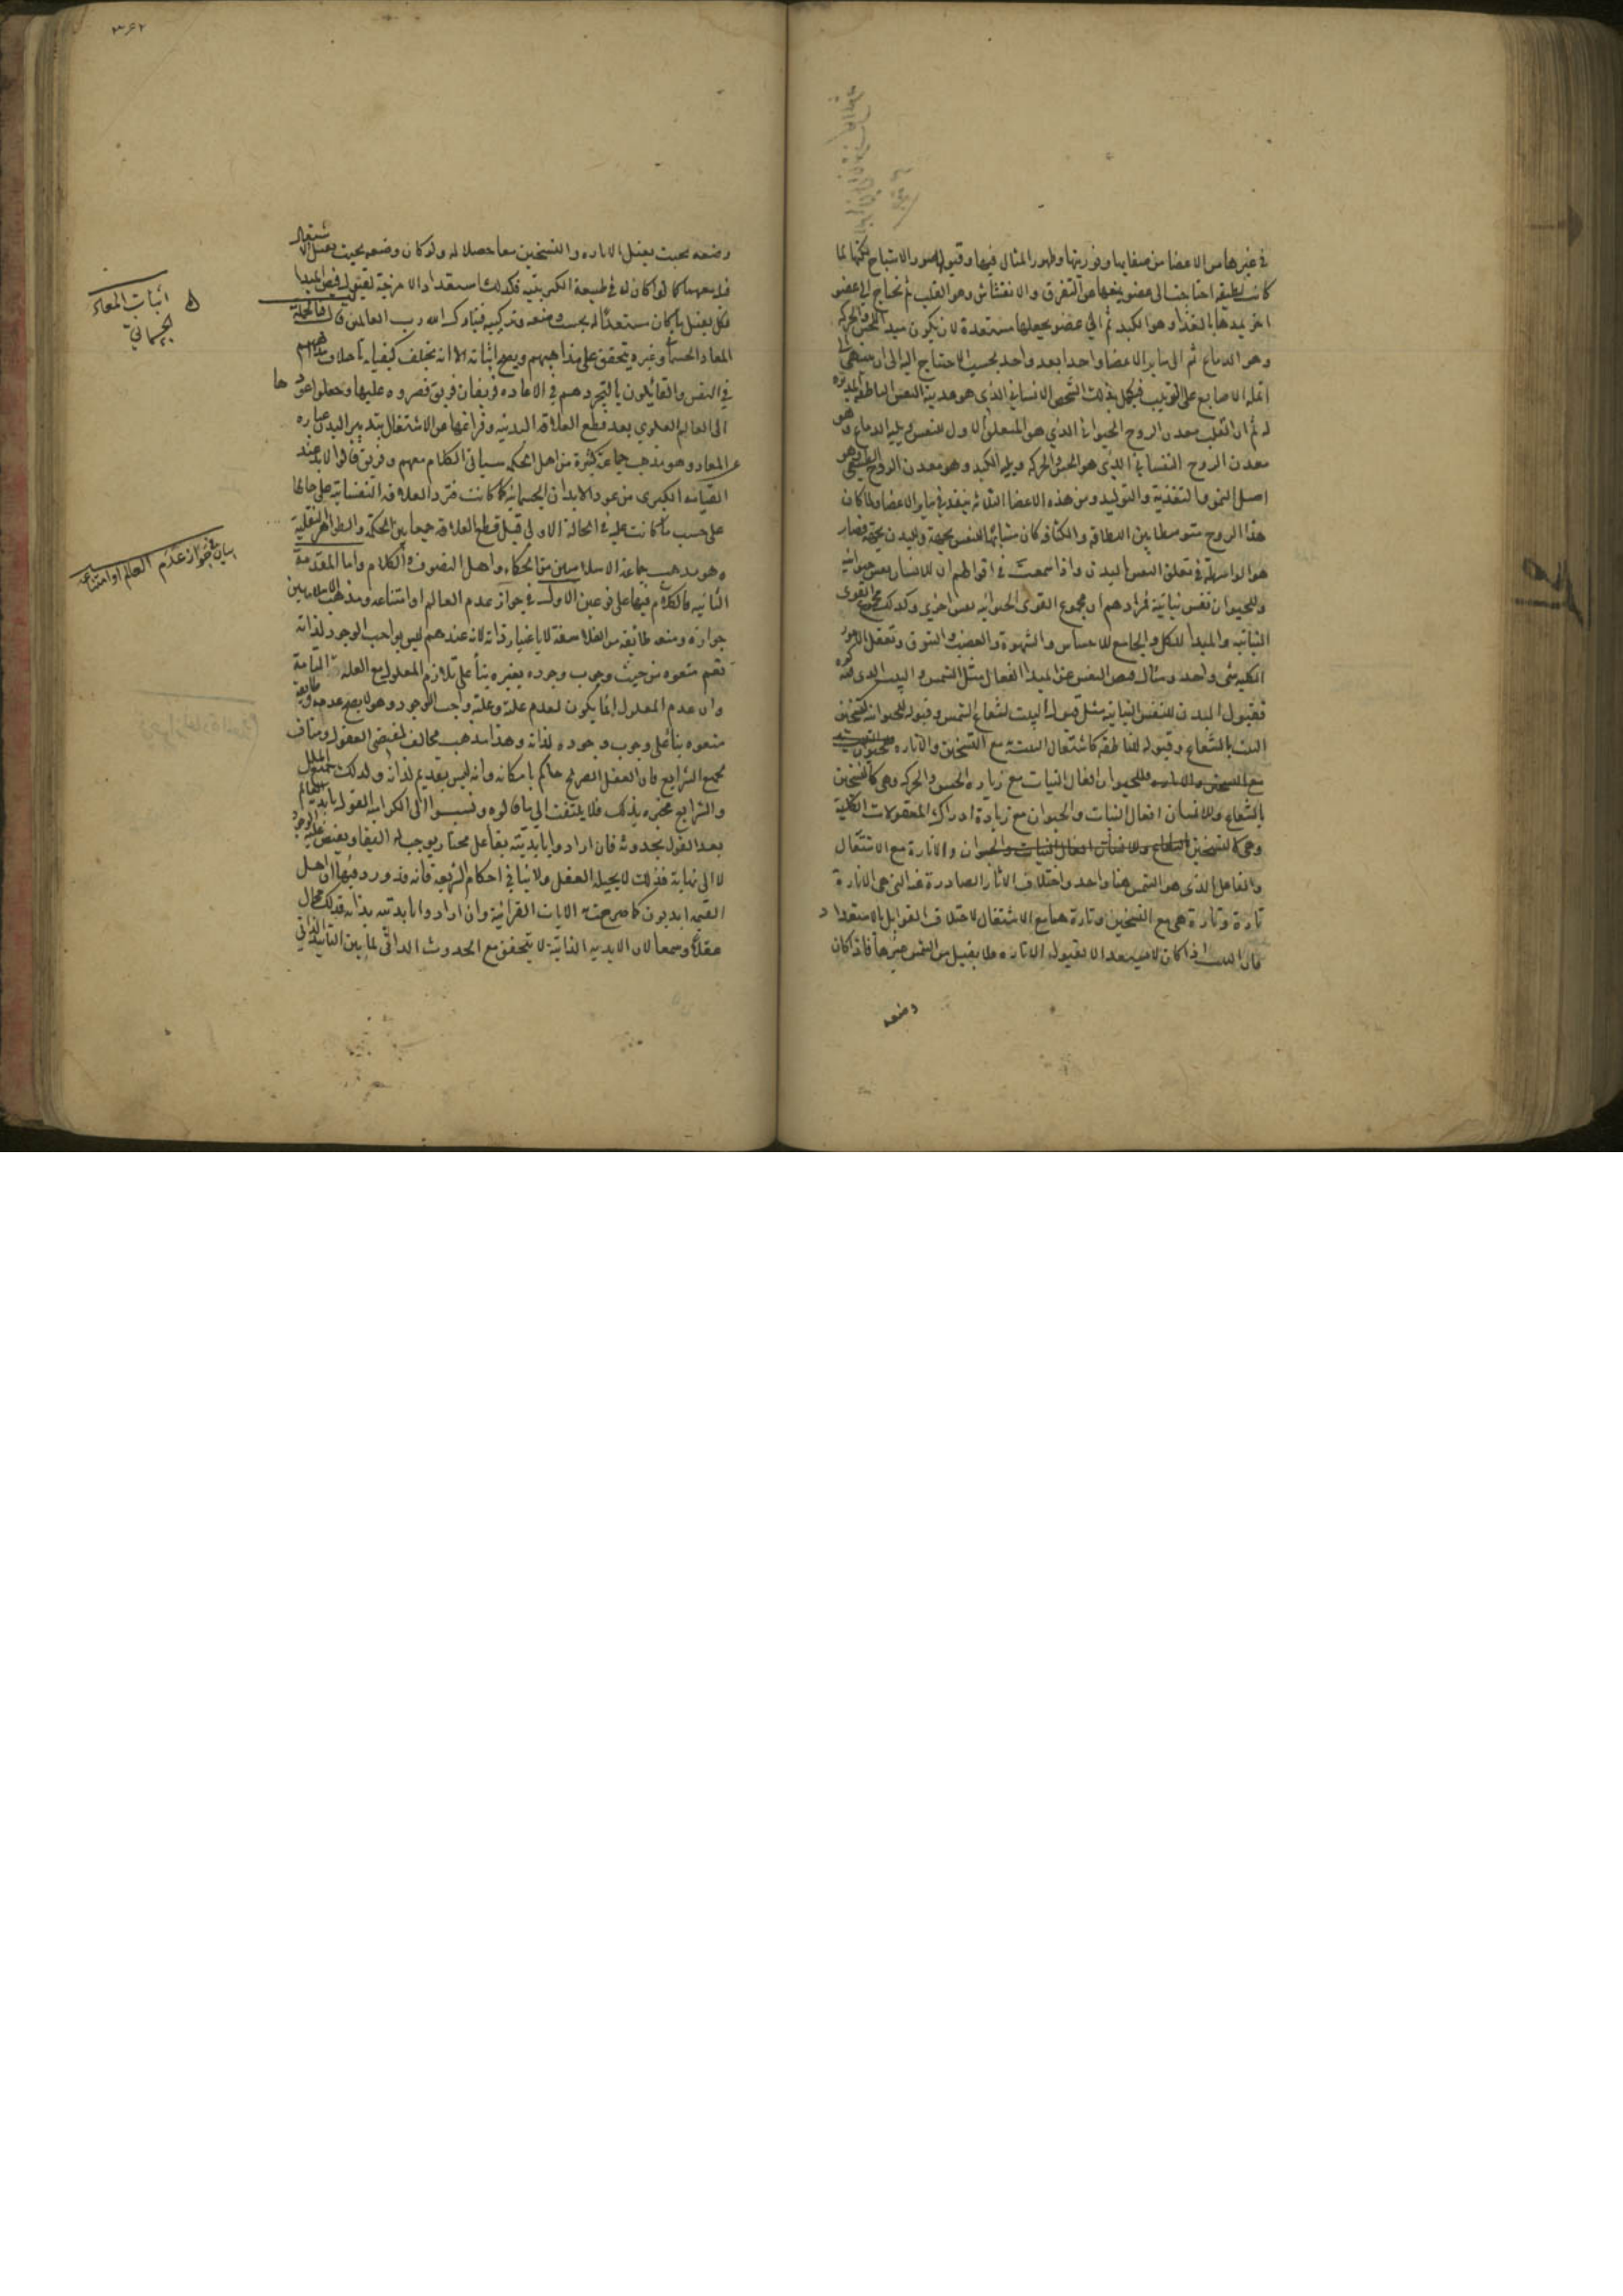 في غيرها من الاعضا من صفايها ونوريتها وظهور المثال فيها وقبولها لصور الاشباح لكنها لما
كانت لطيفه احتاجت الى عضو يمنعها عن التفرق والانفشاش وهو القلب ثم تحتاج الى عضو
اخر يمدها بالغذا وهو الكبد ثم الى عضو يجعلها مستعدة لان يكون مبدا للحس والحركه
وهو الدماغ ثم الى ساير الاعضا واحدا بعد واحد بحسب الاحتياج اليه الى ان ينتهي الى
انملة الاصابع على الترتيب فيكمل بذلك الشخص الانساني الذي هو مدينة النفس الناطقه المدبره
له ثم ان القلب معدن الروح الحيواني الذي هو المتعلق الاول للنفس ويليه الدماغ وهو
معدن الروح النفساني الذي هو الحس والحركه ويليه الكبد وهو معدن الروح الطبيعي وهو
اصل النمو والتغذية والتوليد ومن هذه الاعضا الثلاثه ينفذ في ساير الاعضا ولما كان
هذا الروح متوسطا بين اللطافه والكثافه كان مشابها للنفس بجهة وللبدن بجهة فصار
هو الواسطة في تعلق النفس بالبدن واذا سمعت في اقوالهم ان للانسان نفس حيوانيه
وللحيوان نفس نباتية فمرادهم ان مجموع القوى الحيوانيه نفس اخرى وكذلك مجموع القوى
النباتيه والمبدا للكل والجامع للاحساس والشهوة والغضب والشوق وتعقل الامور
الكليه شى واحد ومثال فيض النفس عن المبدا الفعال مثل الشمس والبيت الذي فيه
فقبول البدن للنفس النباتيه مثل قبول البيت لشعاع الشمس وقبوله للحيوانيه كتسخين
البيت بالشعاع وقبوله للناطقه كاشتعال البيت مع التسخين والانارة
وللحيوان افعال النبات مع زياده الحس والحركه وهي كالتسخين
بالشعاع وللانسان افعال النبات والحيوان مع زيادة ادراك المعقولات الكلية
وهي كالتسخين والانارة مع الاشتعال
والفاعل الذي هو الشمس هنا واحد واختلاف الاثار الصادرة عنه التي هي الانارة
تارة وتارة هي مع التسخين وتارة هما مع الاشتعال لاختلاف القوابل بالاستعداد
فان البيت اذا كان لا يستعد الا لقبول الانارة فلا يقبل من الشمس غيرها فاذا كان
وضعه
وضعه بحيث يقبل الاناره والتسخين معا حصلا له ولو كان وضعه بحيث يقبل الاشتعال
قبله معهما كما لو كان له في طبيعة الكبريتيه فكذلك استعداد الامزجة لقبول فيض المبدا
فكل يقبل ما كان مستعدا له بحسب وضعه وتركيبه فتبارك الله رب العالمين
المعاد الحسماني وغيره يتحقق على مذاهبهم ويصح اثباته الا انه يختلف كيفياته باختلاف مذاهبهم
في النفس والقايلون بالتجرد هم في الاعاده فريقان فريق قصروه عليها وجعلوا عودها
الى العالم العلوي بعد قطع العلاقه البدنيه وفراغها عن الاشتغال بتدبير البدن عباره
عن المعاد وهو مذهب جماعة كثيرة من اهل الحكمه وفريق قالوا لا بد عند
القيامه الكبرى من عود الابدان الجسمانيه كما كانت فترد العلاقه النفسانية على حالها
على حسب ما كانت عليه في الحالة الاولى قبل قطع العلاقه جمعا بين الحكمة والظواهر النقلية
وهو مذهب جماعة الاسلاميين من الحكماء واهل التصوف والكلام واما المقدمة
الثانيه فالكلام فيها على نوعين الاول في جواز عدم العالم او امتناعه ومذهب الاسلاميين
جوازه ومنعه طائفه من الفلاسفة لا باعتبار ذاته لانه عندهم ليس بواجب الوجود لذاته
نعم منعوه من حيث وجوب وجوده بغيره بنأ على تلازم المعلول مع العله التامة
وان عدم المعلول انما يكون لعدم علته وعلته واجب الوجود وهو لا يصح عدمه وطايفة
منعوه بنأ على وجوب وجوده لذاته وهذا مذهب مخالف لمقتضى العقول ومناف
لجميع الشرايع فان العقل الصريح حاكم بامكانه وانه ليس بقديم لذاته ولذلك جميع الملل
والشرايع مخبره بذلك فلا يلتفت الى ما قالوه ونسبوا الى الكراميه القول بابدية العالم
بعد القول بحدوثه فان ارادوا بابديته بقا على مختار يوجب له البقا ويفيض عليه الوجود
لا الى نهاية فذلك لا يحيله العقل ولا ينافي احكام الشريعه فانه قد ورد فيها ان اهل
القيمه ابديون كما صرحت به الايات القرانية وان ارادوا بابديته بذاته فذلك محال
عقلا وسمعا لان الابديه الذاتية لا يتحقق مع الحدوث الذاتي لما بين التأبيد الذاتي
اثبات المعاد
الجسماني
بيان في جواز عدم العالم او امتناعه